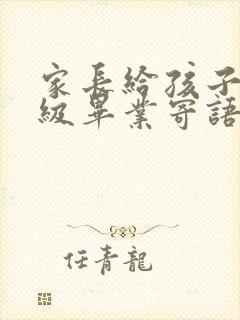 家長給孩子
級畢業寄語
任青龍